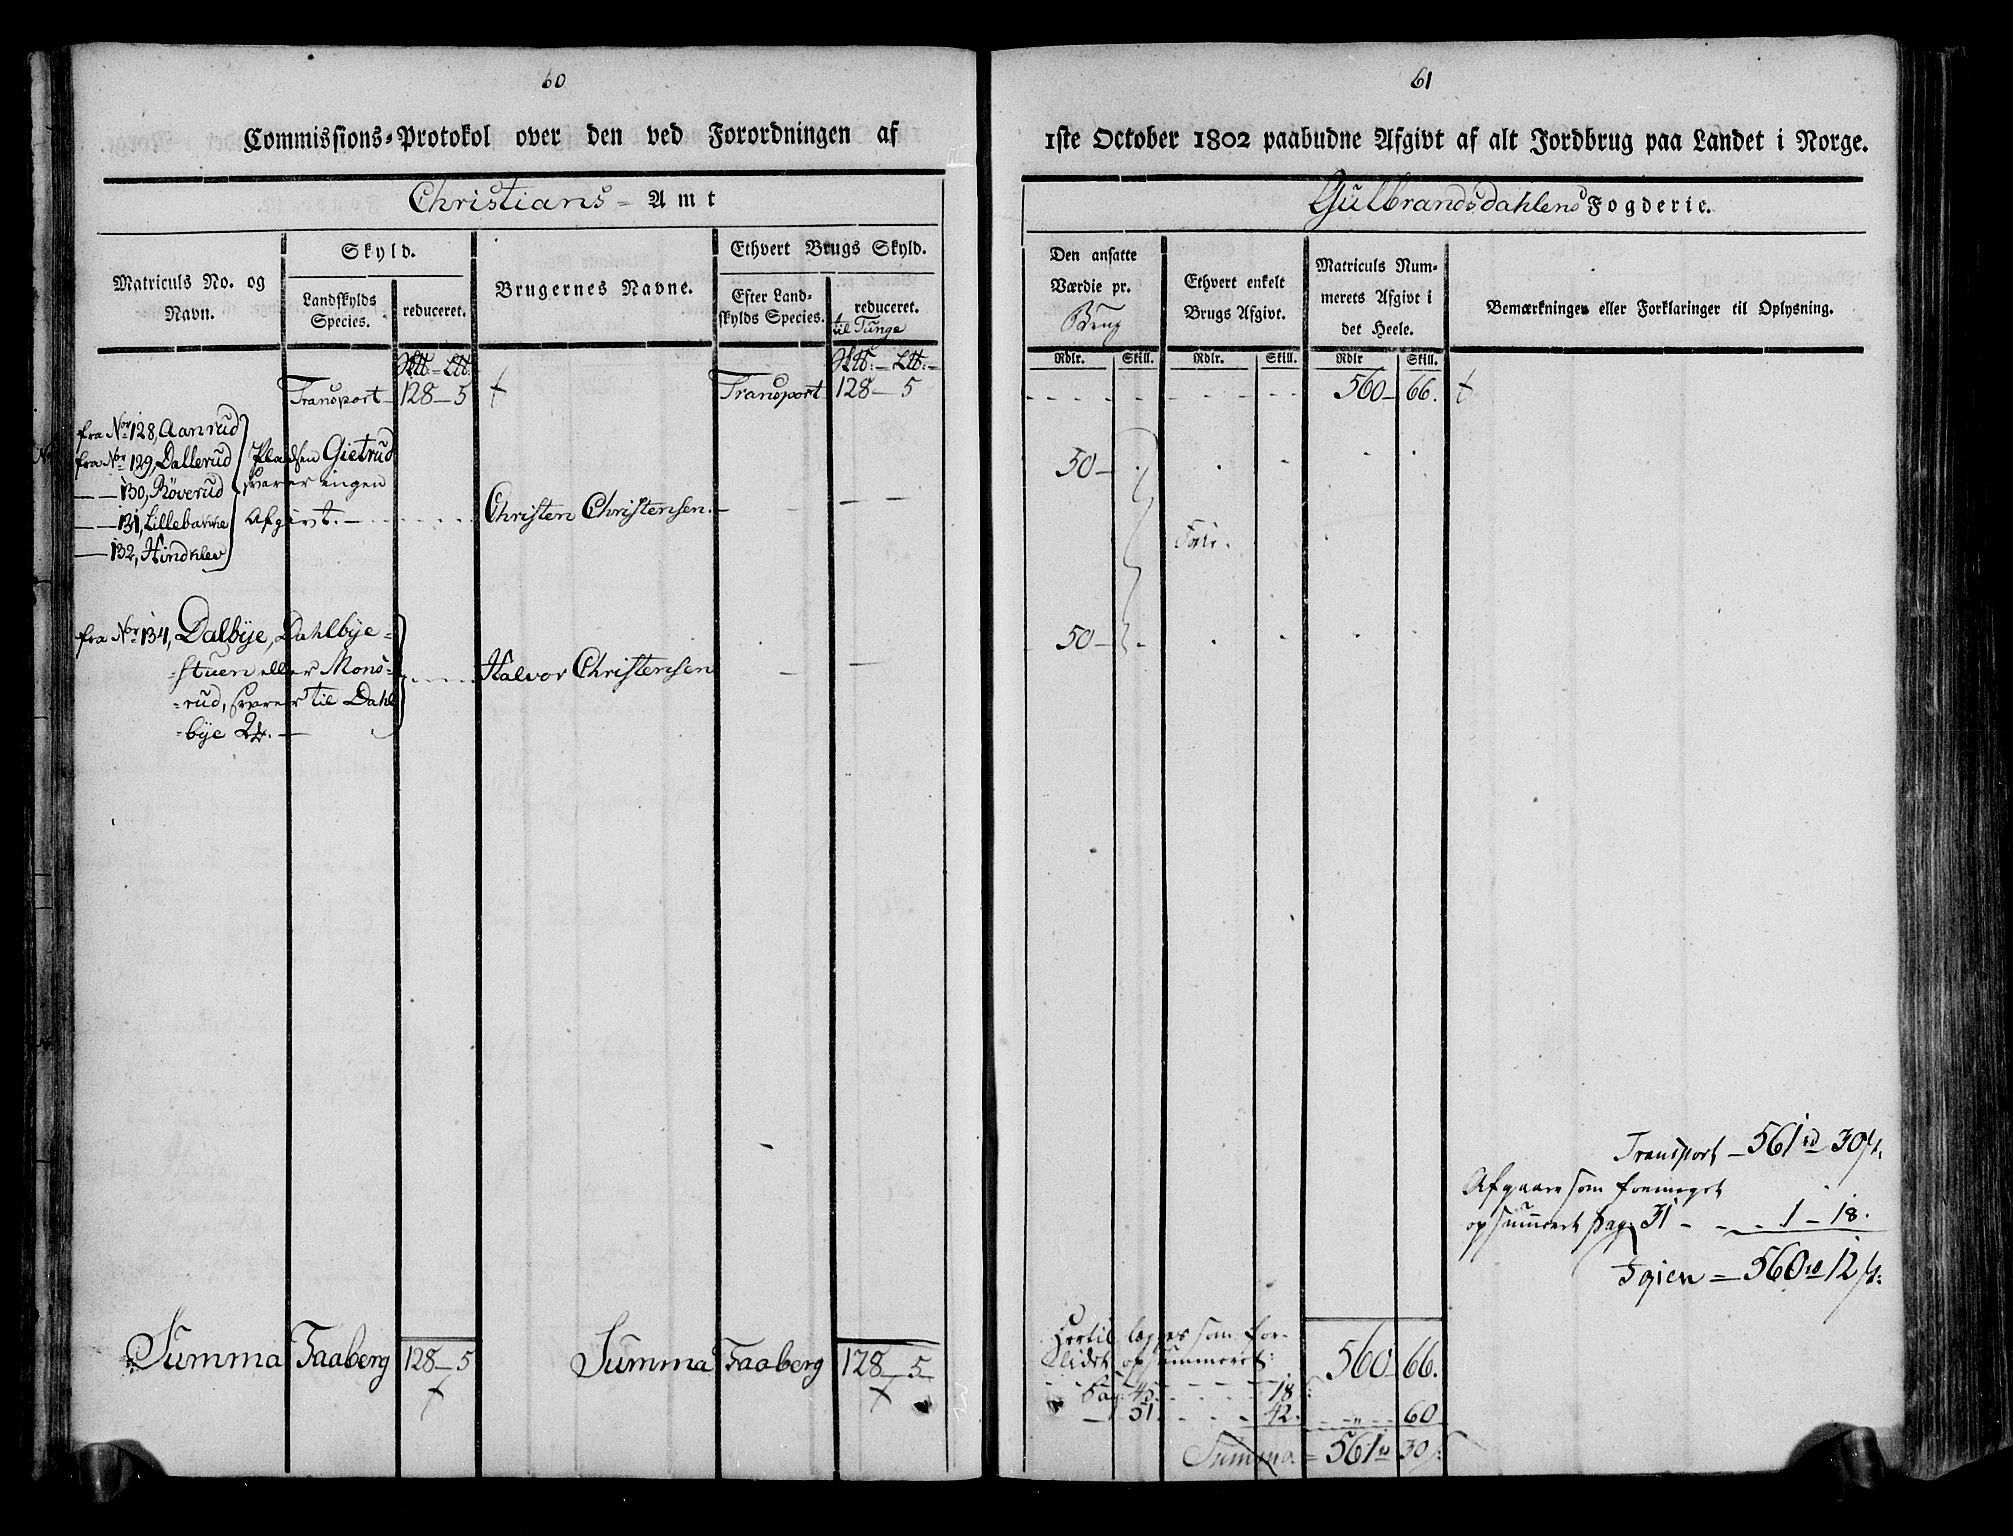 60
Commissions-Protokol over den ved Forordningen af
Christians- Amt
Matriculs No. og Navn.
Skyld.
Landskylds Species.
reduceret.
Brugernes Navne.
Ethvert Brugs Skyld.
Efter Landskylds Species.
reduceret.
til Tunge
Transport 128 - 5
Transport 128 - 5
fra Nor 128, Aanrud
fra Nor 129, Dallerud
— 130, Röverud
— 131, Lillebakke
— 132, Hindklev
Pladsen Gietrud
svarer ingen
Afgivt.
Christen Christensen.
fra Nor 134, Dalbÿe, Dahlbÿe-
stuen eller Mons-
rud, svarer til Dahl
bÿe
Halvor Christensen
Summa Faaberg 128 - 5
Summa Faaberg 128 - 5
61
1ste October 1802 paabudne Afgivt af alt Jordbrug paa Landet i Norge.
Gulbrandsdahlens Fogderie.
Den ansatte Værdie pr.
Brug
Ethvert enkelt Brugs Afgivt.
Matriculs Nummerets Afgivt i det Heele.
Bemærkninger eller Forklaringer til Oplysning.
Rdlr. Skill. Rdlr. Skill. Rdlr Skill.
560 - 66.
50 -
50 -
Transport - 561 rd 30 s.
Afgaaer som formeget
opsummert pag. 31 - - - 1 - 18.
Igien = 560 rd 12 s.
Hertil legges som for-
lidet opsummeret:
Pag. 45 - - - 18
— 51. - - - 42. - - " - - 60
560 - 66.
Summa = 561 rd 30 s.